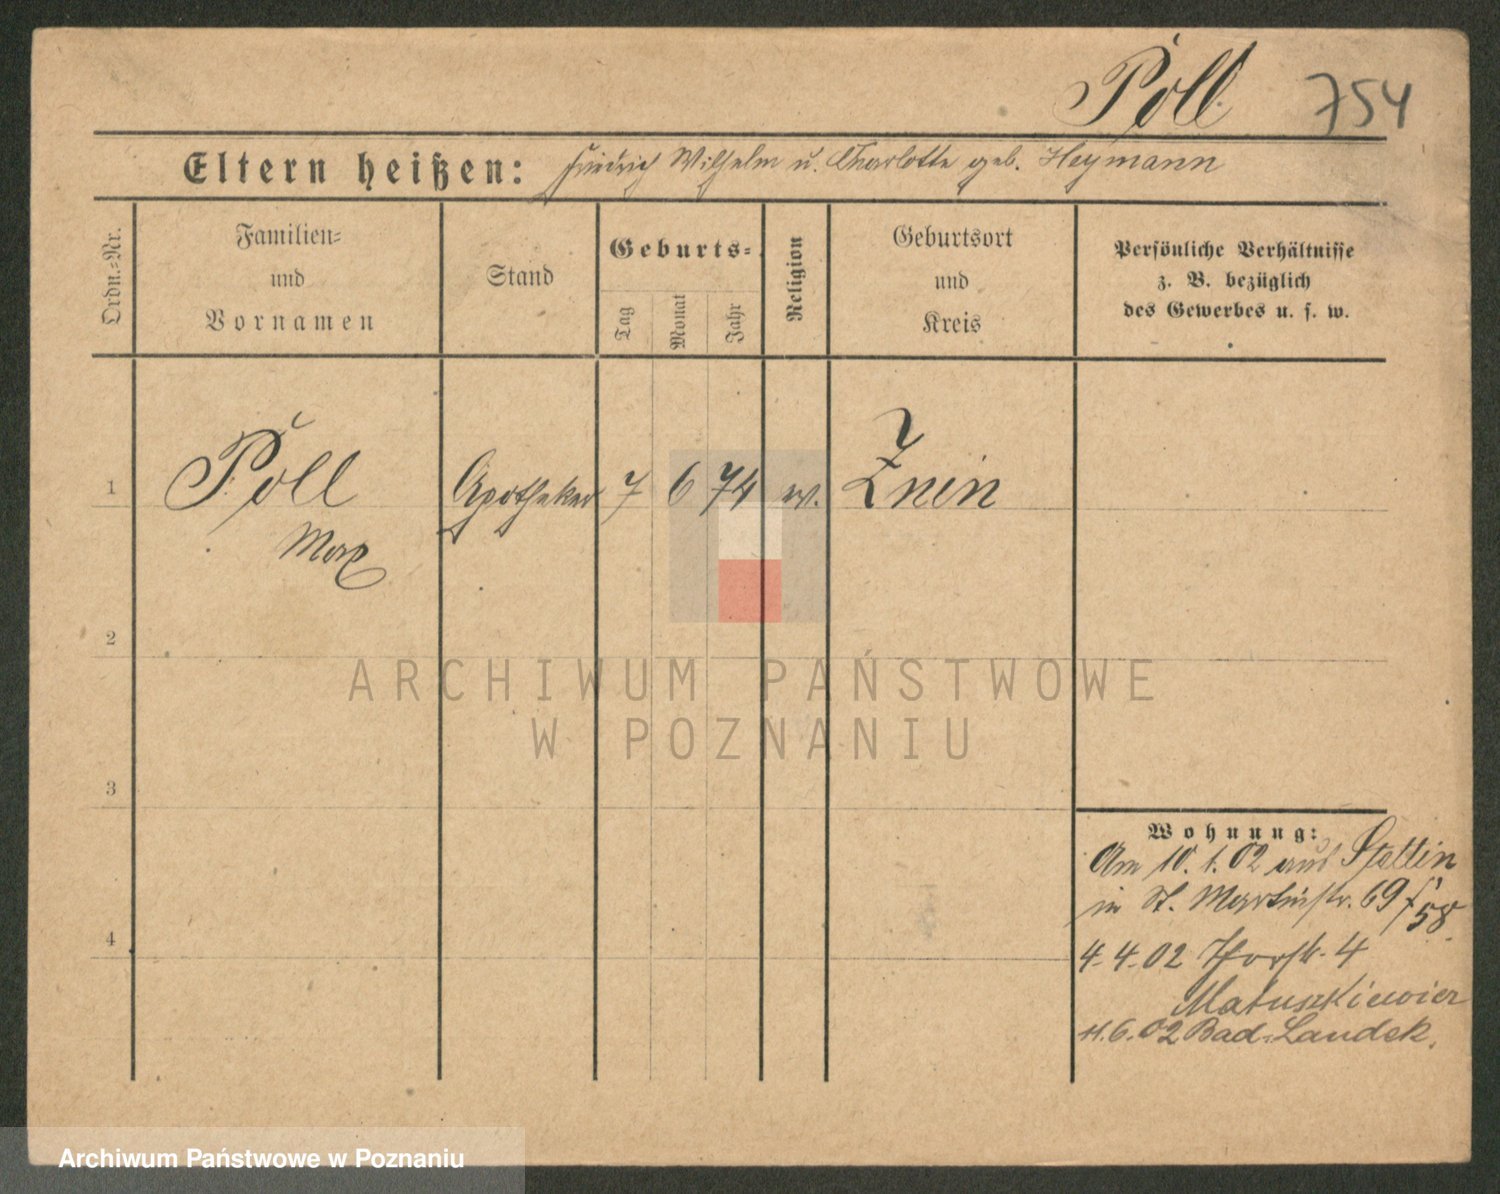 Poll 754
Eltern heißen: Friedrich Wilhelm u. Charlotte geb. Heymann
Ordn.-Nr.
Familien-
und
Vornamen
Stand
Geburts-
Tag
Monat
Jahr
Religion
Geburtsort
und
Kreis
Persönliche Verhältnisse
z. B. bezüglich
des Gewerbes u. s. w.
1 Poll Apotheker 7 6 74 ev. Znin
Max
2
3
4
Wohnung:
Am 10.1.02 aus Stettin
in St. Martinstr. 69
58
4.4.02 4
Matuszkiewicz
6.02 Bad-Landek.
ARCHIWUM PAŃSTWOWE
W POZNANIU
Archiwum Państwowe w Poznaniu